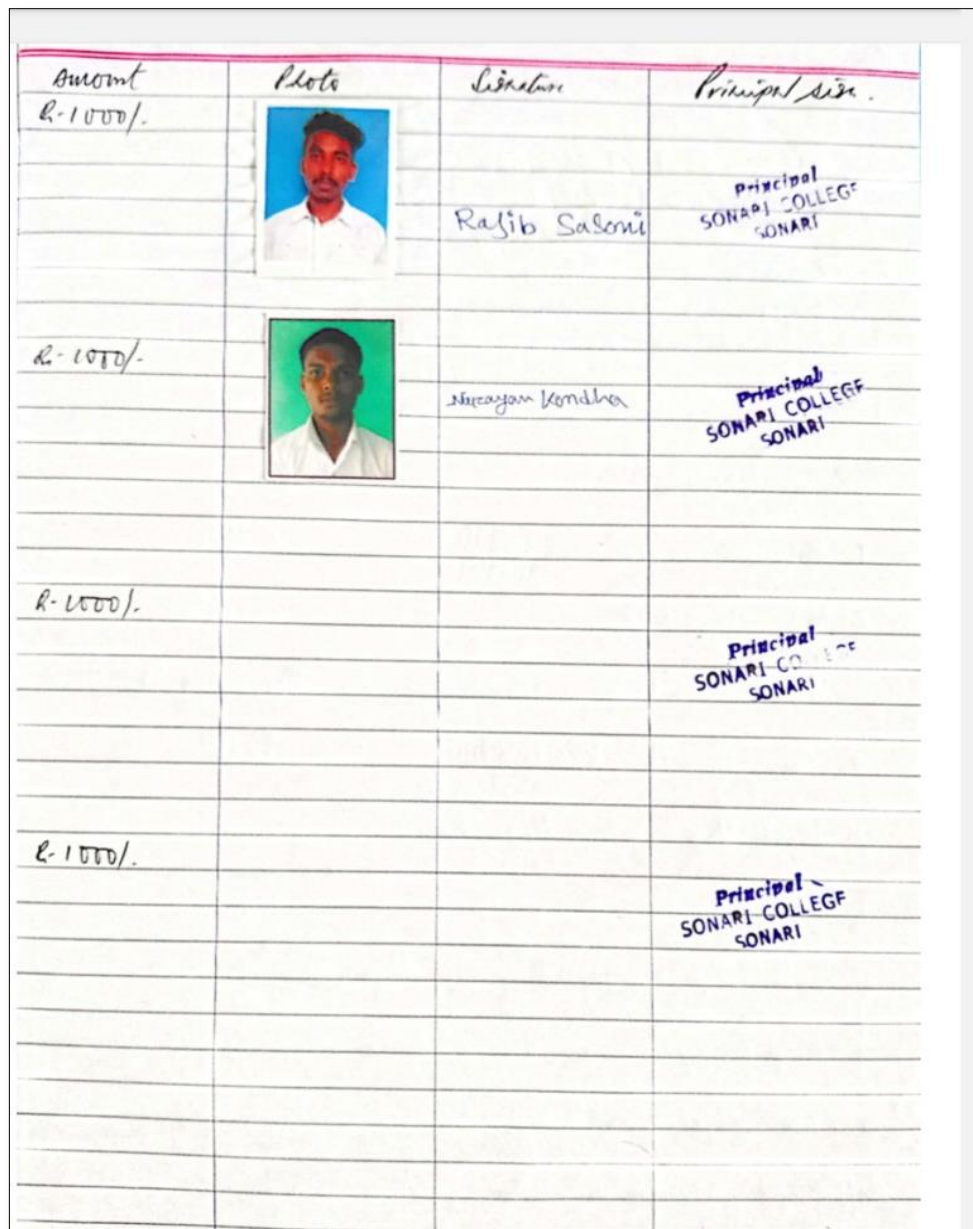 Amount Photo Signature Principal sign.
R-1000/-
Rajib Sasoni
Principal
SONARI COLLEGE
SONARI
R-1000/-
Narayan Kondha
Principal
SONARI COLLEGE
SONARI
R-1000/-
Principal
SONARI COLLEGE
SONARI
R-1000/-
Principal
SONARI COLLEGE
SONARI